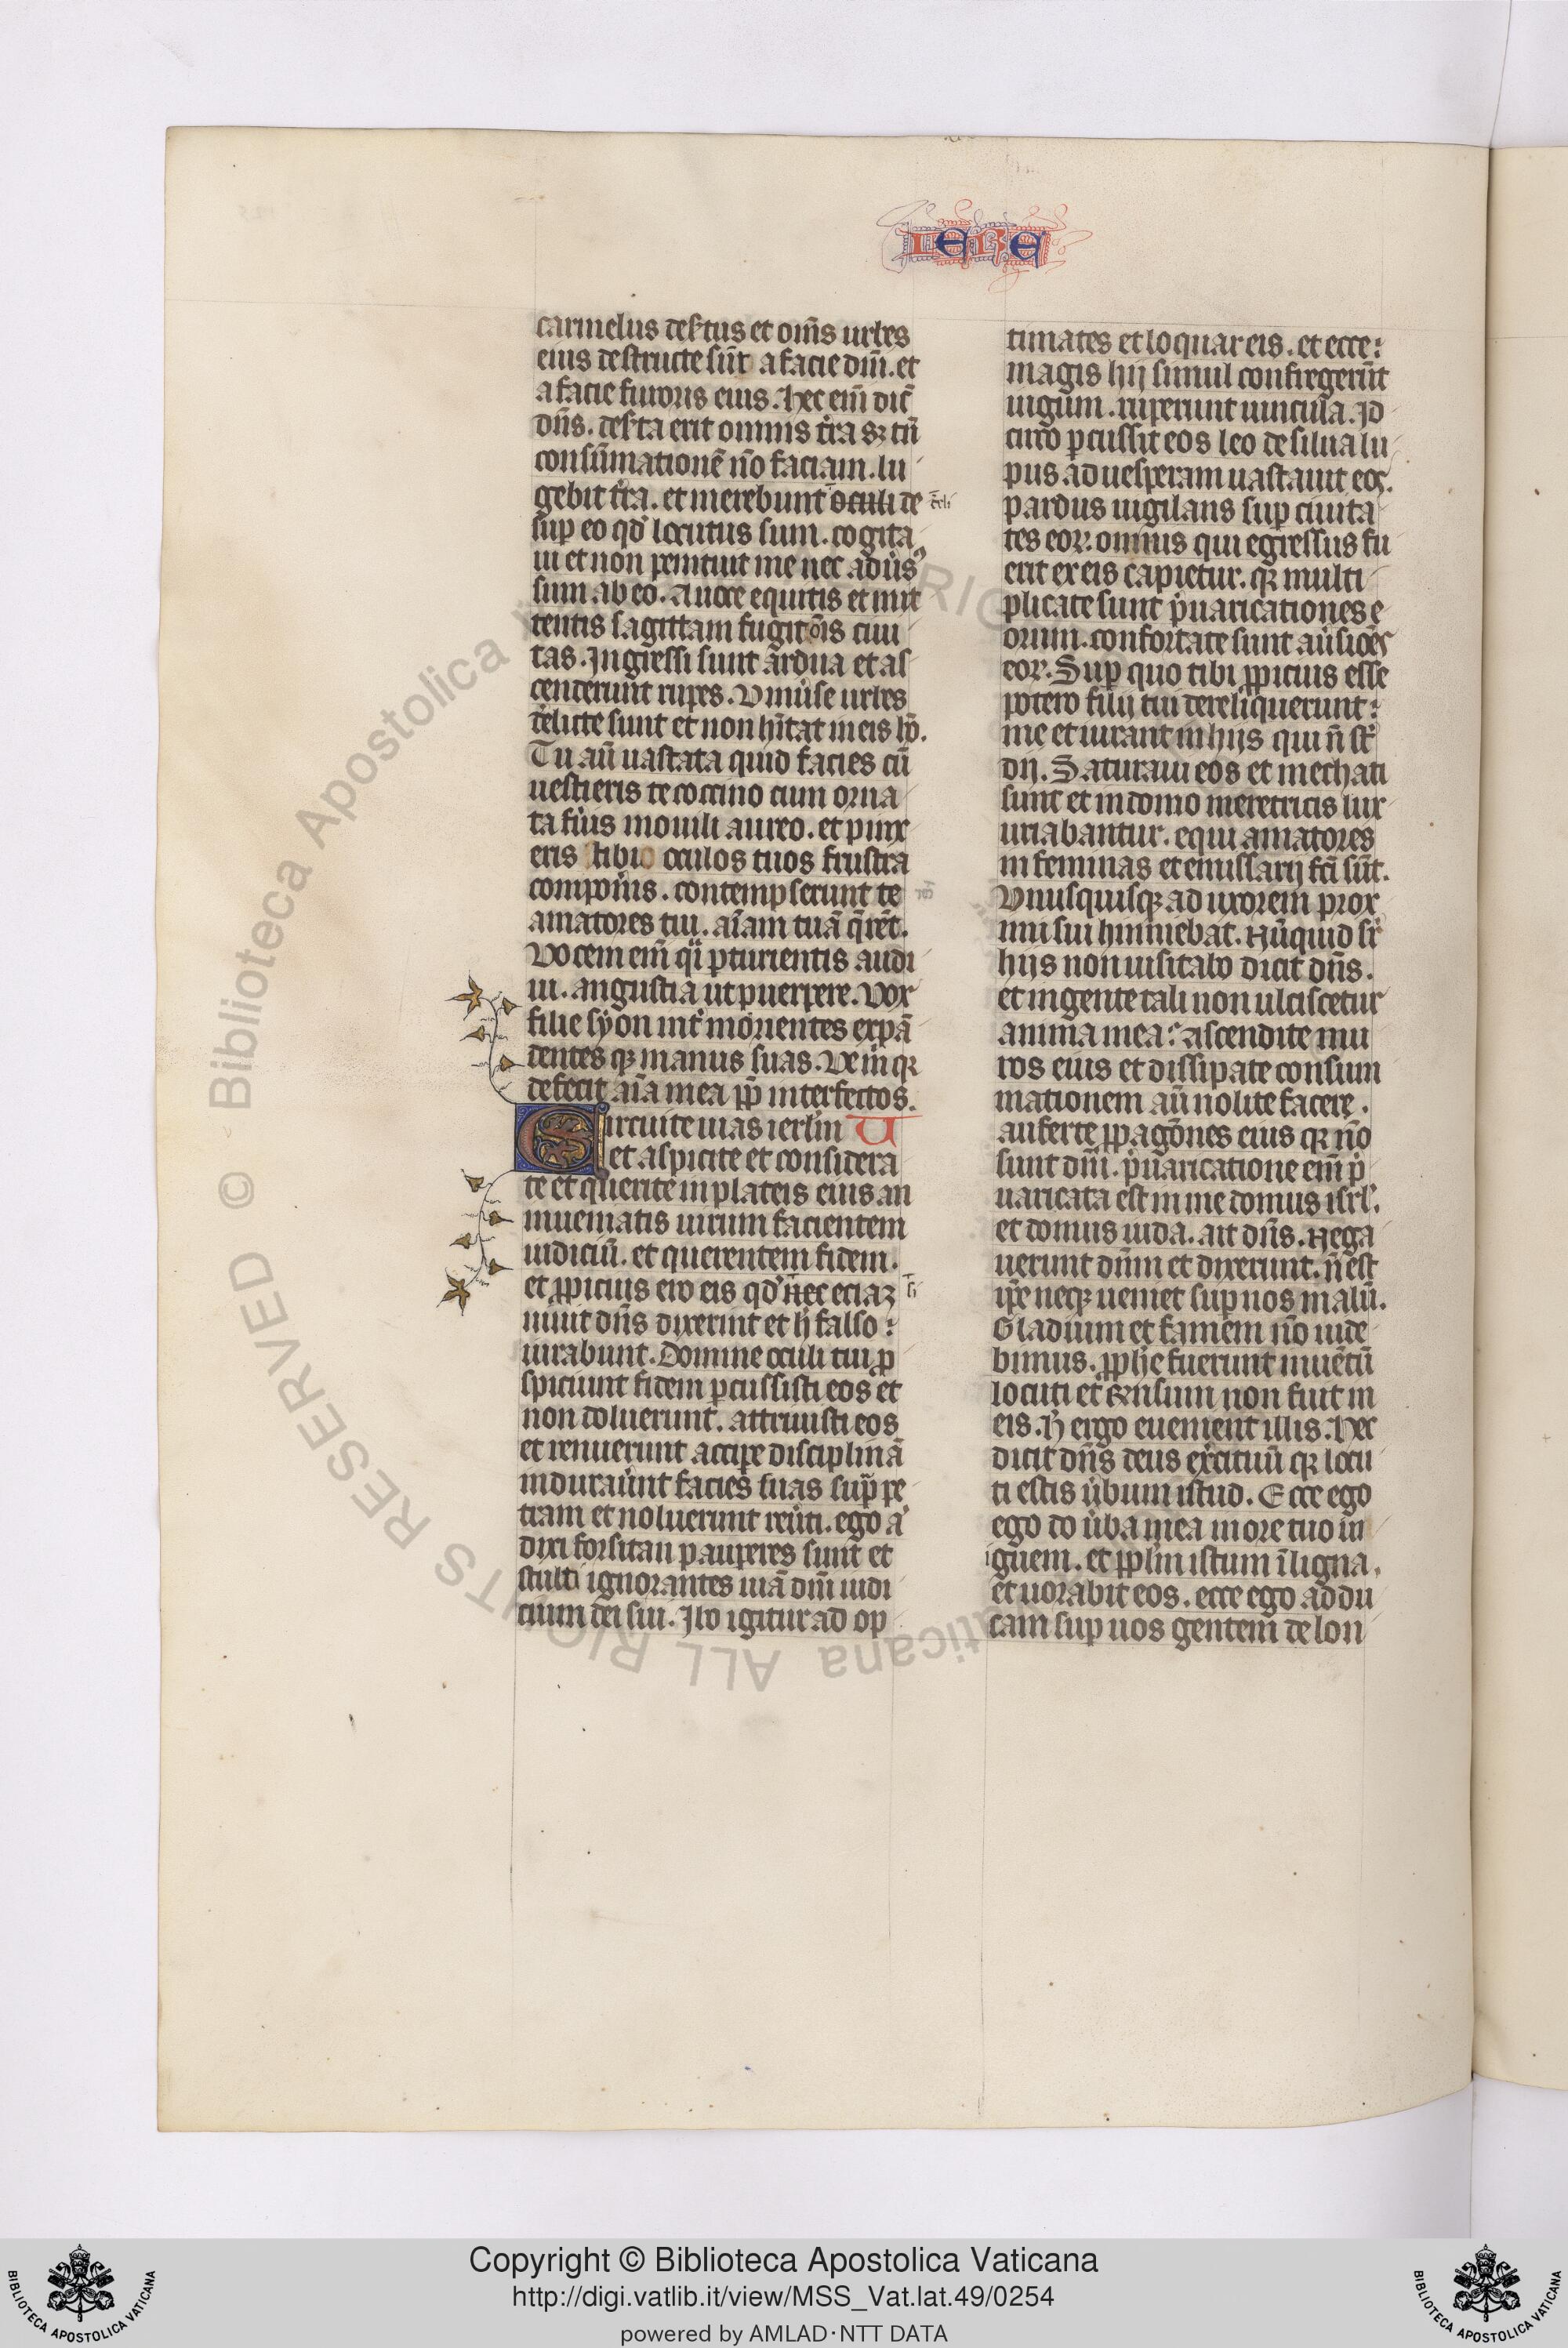 IERE
carmelus desertus et om̄s urbes
eius destructe sūt a facie dn̄i. et
a facie furoris eius. hec em̄ dic̄
dn̄s. deserta erit omnis t̄ra sꝫ tn̄
consūmationē nō faciam. lu
gebit t̄ra. et merebunt oculi de
c̄eli
suꝑ eo qd̓ locutus sum. cogita
ui et non penituit me nec adūs
sum ab eo. A uoce equitis et mit
tentis sagittam fugit ōis ciui
tas. Ingressi sunt ardua et as
cenderunt rupes. Vniūse urbes
d̄elicte sunt et non hītat in eis hō.
Tu aū uastata quid facies cū
uestieris te coccino cum orna
ta fūis monili aureo. et pinx
eris stibio oculos tuos frustra
componīs. contempserunt te
amatores tui. aīam tuā q̄rēt.
Vocem em̄ q̄i ꝑturientis audi
ui. angustia ut puerpere. Vox
filie syon int̄ morientes expā
dentes qꝫ manus suas. Ve m̄ qꝛ
defecit aīa mea ꝓp̄ interfectos.
Circuite uias ierlm̄ V
et aspicite et considera
te et querite in plateis eius an
inueniatis uirum facientem
iudiciū. et querentem fidem.
et ꝓpicius ero eis qd̓ nec eciaꝫ
uiuit dn̄s dixerint et h̄ falso :
iurabunt. Domine oculi tui ꝑ
spiciunt fidem ꝑcussisti eos et
non doluerunt. attriuisti eos
et renuerunt accipe disciplinā
indurauūnt facies suas sup̄ pe
tram et noluerunt reūti. ego a
dixi forsitan pauperes sunt et
stulti ignorantes uiā dn̄i iudi
cium dei sui. Ibo igitur ad op
timates et loquar eis. et ecce :
magis hij simul confregerūt
iugum. ruperunt uincula. Id
circo ꝑcussit eos leo de silua lu
pus ad uesperam uastauit eos.
pardus uigilans suꝑ ciuita
tes eoꝝ. omnis qui egressus fu
erit ex eis capietur. qꝛ multi
plicate sunt p̄uaricationes e
orum. confortate sunt aūsiōes
eoꝝ. Suꝑ quo tibi ꝓpicius esse
potero filij tui dereliquerunt :
me et iurant in hijs qui n̄ st̄
dij. Saturaui eos et mechati
sunt et in domo meretricis lux
uriabantur. equi amatores
in feminas et emissarij fc̄i sūt.
Vnusquisqꝫ ad uxorem prox
imi sui hinniebat. Nūquid sr̄
hijs non uisitabo dicit dn̄s.
et in gente tali non ulciscetur
anima mea : ascendite mu
ros eius et dissipate consum
mationem aū nolite facere.
auferte ꝓpagōnes eius qꝛ nō
sunt dn̄i. p̄uaricatione em̄ p̄
uaricata est in me domus isrl̄.
et domus iuda. ait dn̄s. Nega
uerunt dn̄m et dixerunt. n̄ est
ip̄e neqꝫ ueniet suꝑ nos malū.
Gladium et famem nō uide
bimus. ꝓphe fuerunt in uētū
locuti et respōnsum non fuit in
eis. h̄ ergo euenient illis. Hec
dicit dn̄s deus exc̄ituū qꝛ locu
ti estis ūbum istud. Ecce ego
ego do ūba mea in ore tuo in
iguem. et ppl̄m istum ī ligna.
et uorabit eos. ecce ego addu
cam sup uos gentem de lon
Copyright © Biblioteca Apostolica Vaticana
http://digi.vatlib.it/view/MSS_Vat.lat.49/0254
powered by AMLAD·NTT DATA
BIBLIOTECA APOSTOLICA VATICANA
BIBLIOTECA APOSTOLICA VATICANA
© Biblioteca Apostolica Vaticana ALL RIGHTS RESERVED